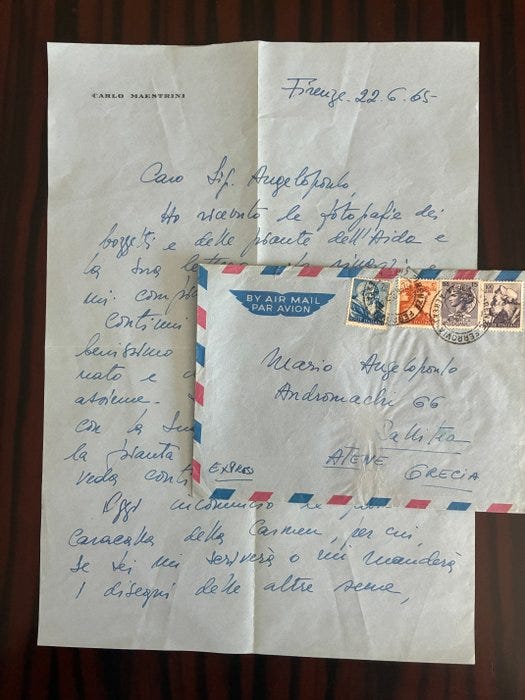 CARLO MAESTRINI
Firenze. 22.6.65-
Caro Sig. Angelopoulo,
Ho ricevuto le fotografie dei
bozzetti e delle piante dell'Aida e
la Sua
mi
contin
benissimo
nato e
assieme.
con la Sua
la pianta
veda cont
Oggi incomincio le
Caracalla della Carmen, per cui,
se Lei mi scriverà o mi manderà
i disegni delle altre scene,
BY AIR MAIL
PAR AVION
Mario Angelopoulo
Andromachi 66
Kallitea
ATENE
GRECIA
EXPRESS